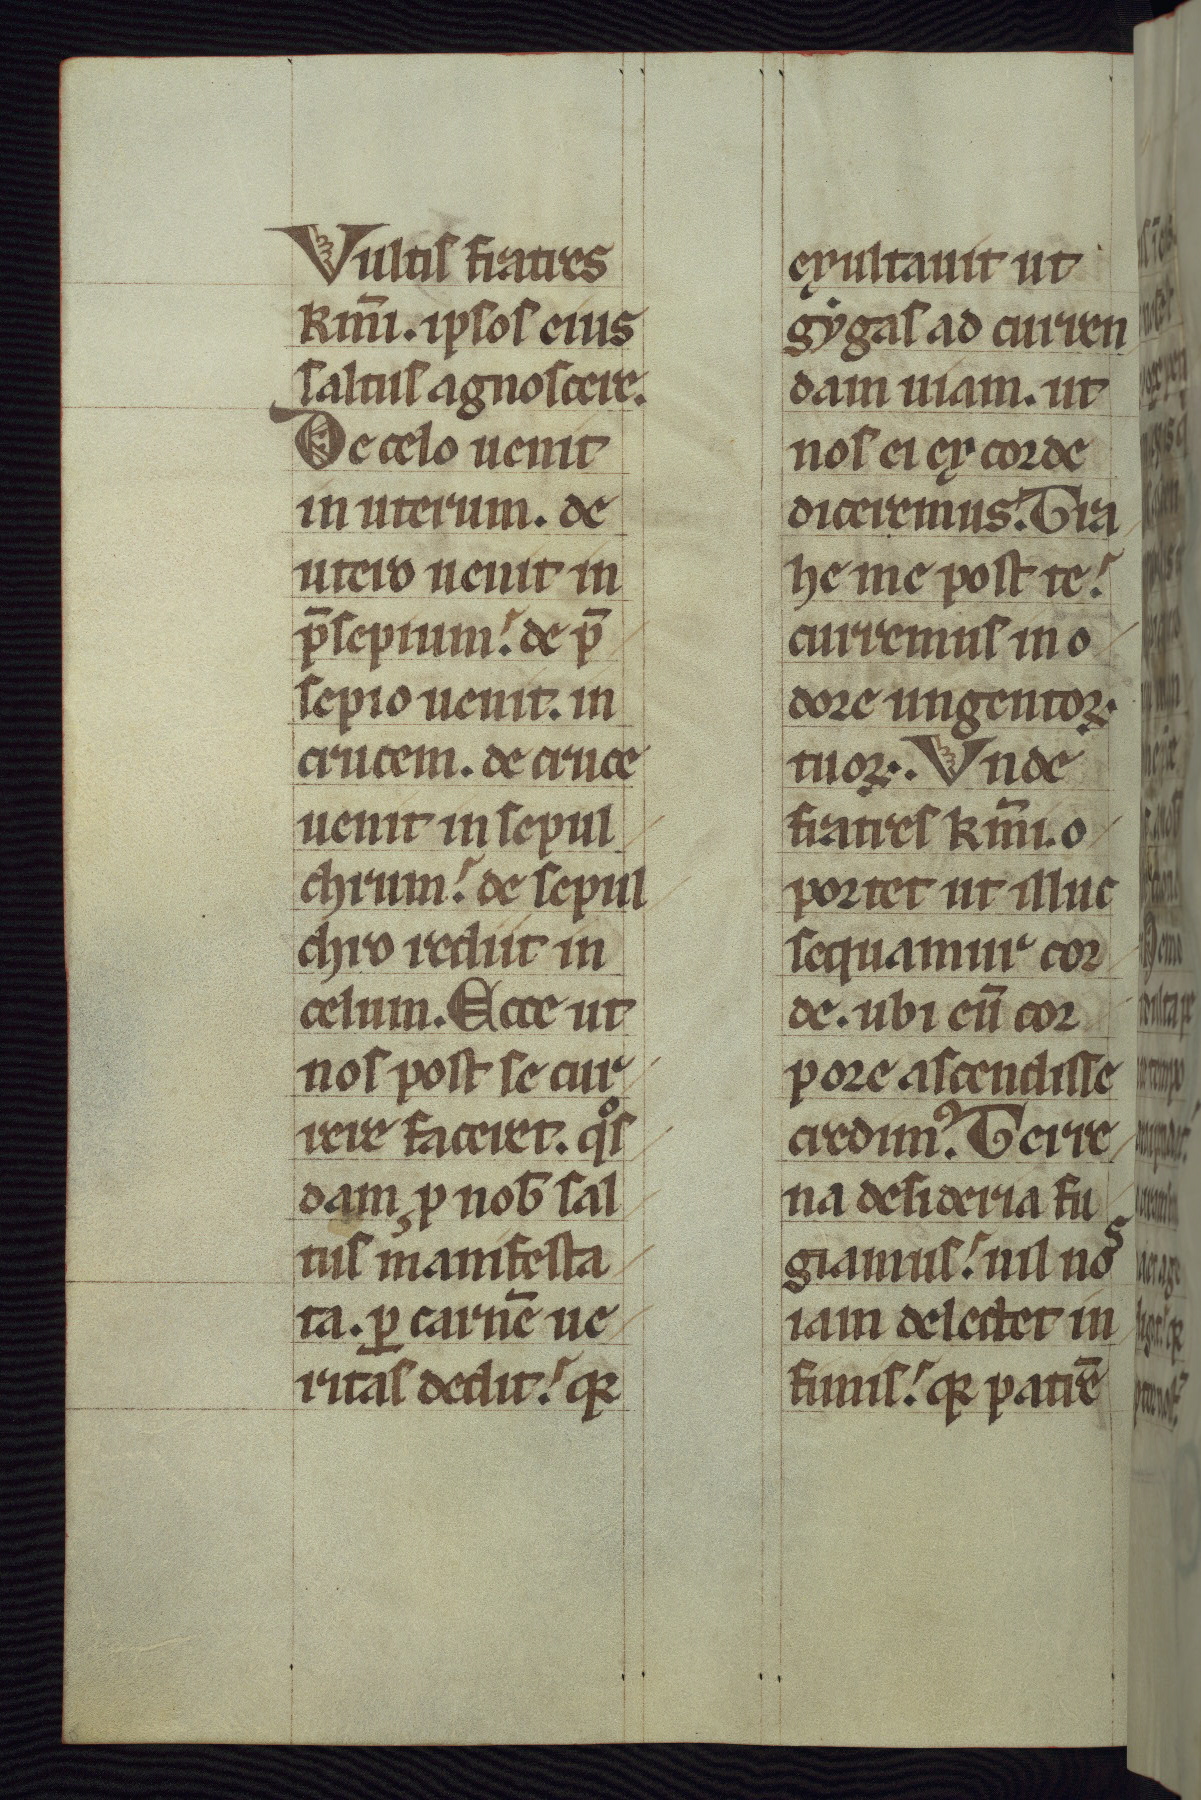 Vultis fratres
km̄i. ipsos eius
saltus agnoscere.
De celo uenit
in uterum. de
utero uenit in
p̄sepium. de p̄
sepio uenit. in
crucem. de cruce
uenit in sepul
chrum. de sepul
chro rediit in
celum. Ecce ut
nos post se cur
rere faceret. qͦs
dam ꝓ nob̄ sal
tus manifesta
ta. ꝑ carnē ue
ritas dedit. qꝛ
exultauit ut
gẏgas ad curren
dam uiam. ut
nos ei ex corde
diceremus. Tra
he me post te.
curremus in o
dore ungentoꝝ
tuoꝝ. Vnde
fratres km̄i. o
portet ut illuc
sequamur cor
de. ubi eū cor
pore ascendisse
credimꝰ. Terre
na desideria fu
giamus. nil nos
iam delectet in
fimis. qꝛ patrē